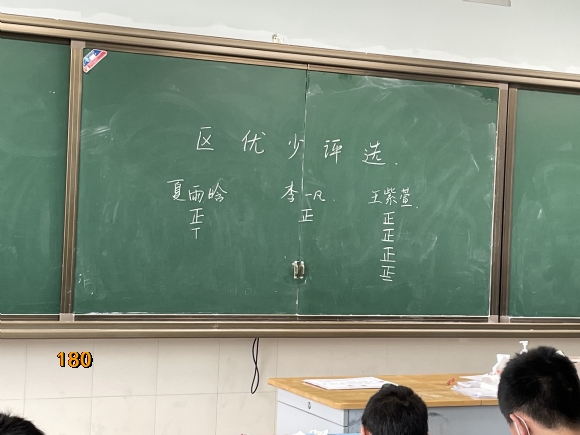 区优少评选.
夏雨晗 李一凡. 王紫萱.
正 正 正
丅 正
正
正
180